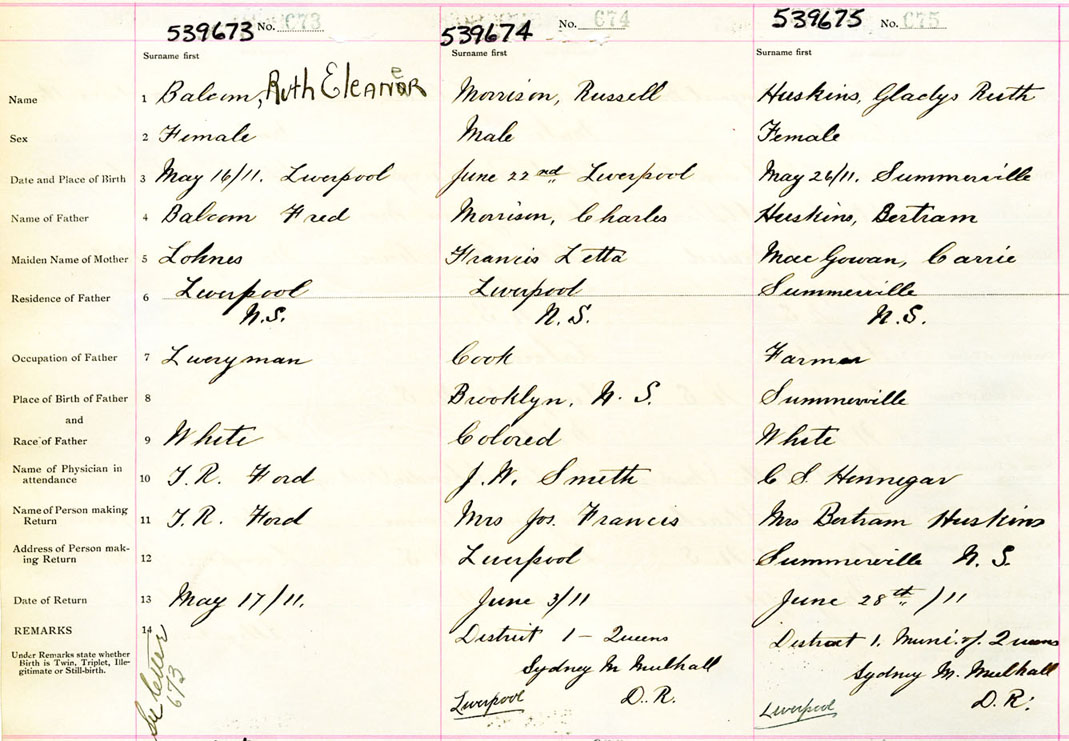 539673 No. 673 539674 No. 674 539675 No. 675
Surname first Surname first Surname first
Name 1 Balcom, Ruth Eleanor Morrison, Russell Huskins, Gladys Ruth
e
Sex 2 Female Male Female
Date and Place of Birth 3 May 16/11. Liverpool June 22nd Liverpool May 26/11. Summerville
Name of Father 4 Balcom Fred Morrison, Charles Huskins, Bertram
Maiden Name of Mother 5 Lohnes Francis Letta MacGowan, Carrie
Residence of Father 6 Liverpool Liverpool Summerville
N.S. N.S. N.S.
Occupation of Father 7 Liveryman Cook Farmer
Place of Birth of Father 8 Brooklyn, N. S. Summerville
and
Race of Father 9 White Colored White
Name of Physician in
attendance 10 T.R. Ford J.W. Smith C S. Hennegar
Name of Person making
Return 11 T.R. Ford Mrs Jos. Francis Mrs Bertram Huskins
Address of Person mak-
ing Return 12 Liverpool Summerville N.S.
Date of Return 13 May 17/11. June 3/11 June 28th /11
REMARKS 14 District 1 - Queens District 1. Muni. of Queens
Under Remarks state whether
Birth is Twin, Triplet, Ille-
gitimate or Still-birth.
Sydney M Mulhall Sydney M. Mulhall
Liverpool D.R. Liverpool D.R.
See letter
673